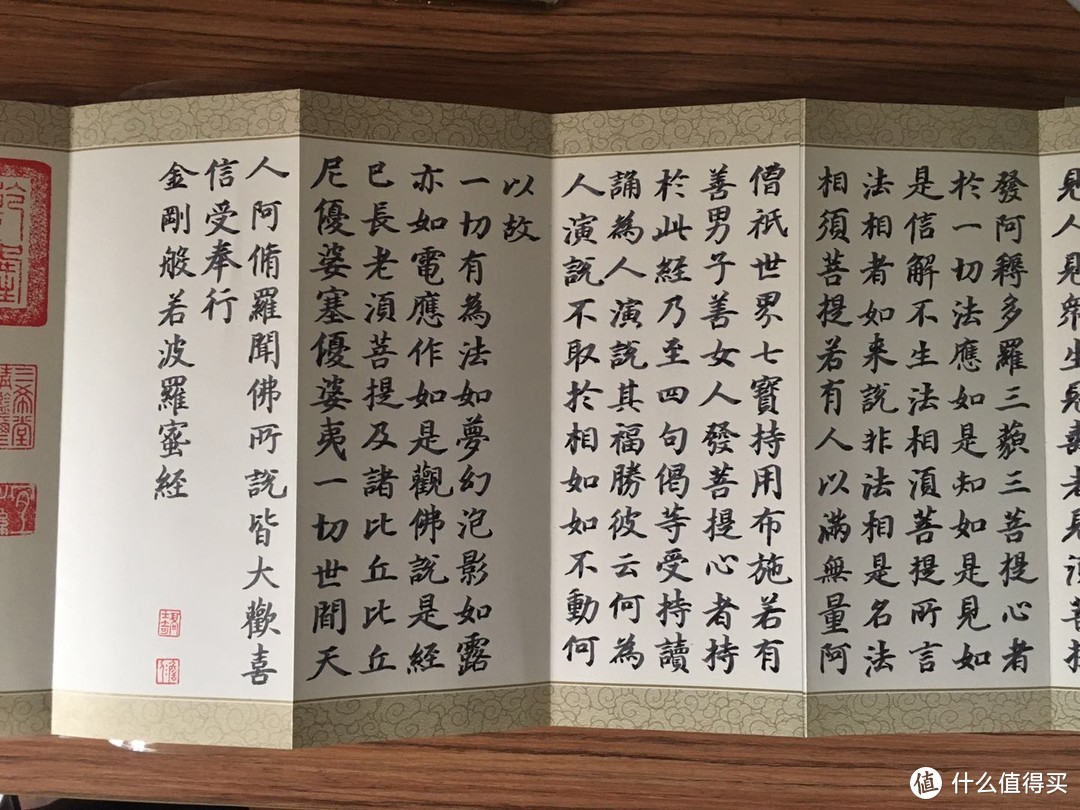 見人見眾生見壽者見須菩提
發阿耨多羅三藐三菩提心者
於一切法應如是知如是見如
是信解不生法相須菩提所言
法相者如来說非法相是名法
相須菩提若有人以滿無量阿
僧祇世界七寶持用布施若有
善男子善女人發菩提心者持
於此經乃至四句偈等受持讀
誦為人演說其福勝彼云何為
人演說不取於相如如不動何
以故
一切有為法如夢幻泡影如露
亦如電應作如是觀佛說是經
已長老須菩提及諸比丘比丘
尼優婆塞優婆夷一切世間天
人阿脩羅聞佛所說皆大歡喜
信受奉行
金剛般若波羅蜜經
三希堂
值 什么值得买